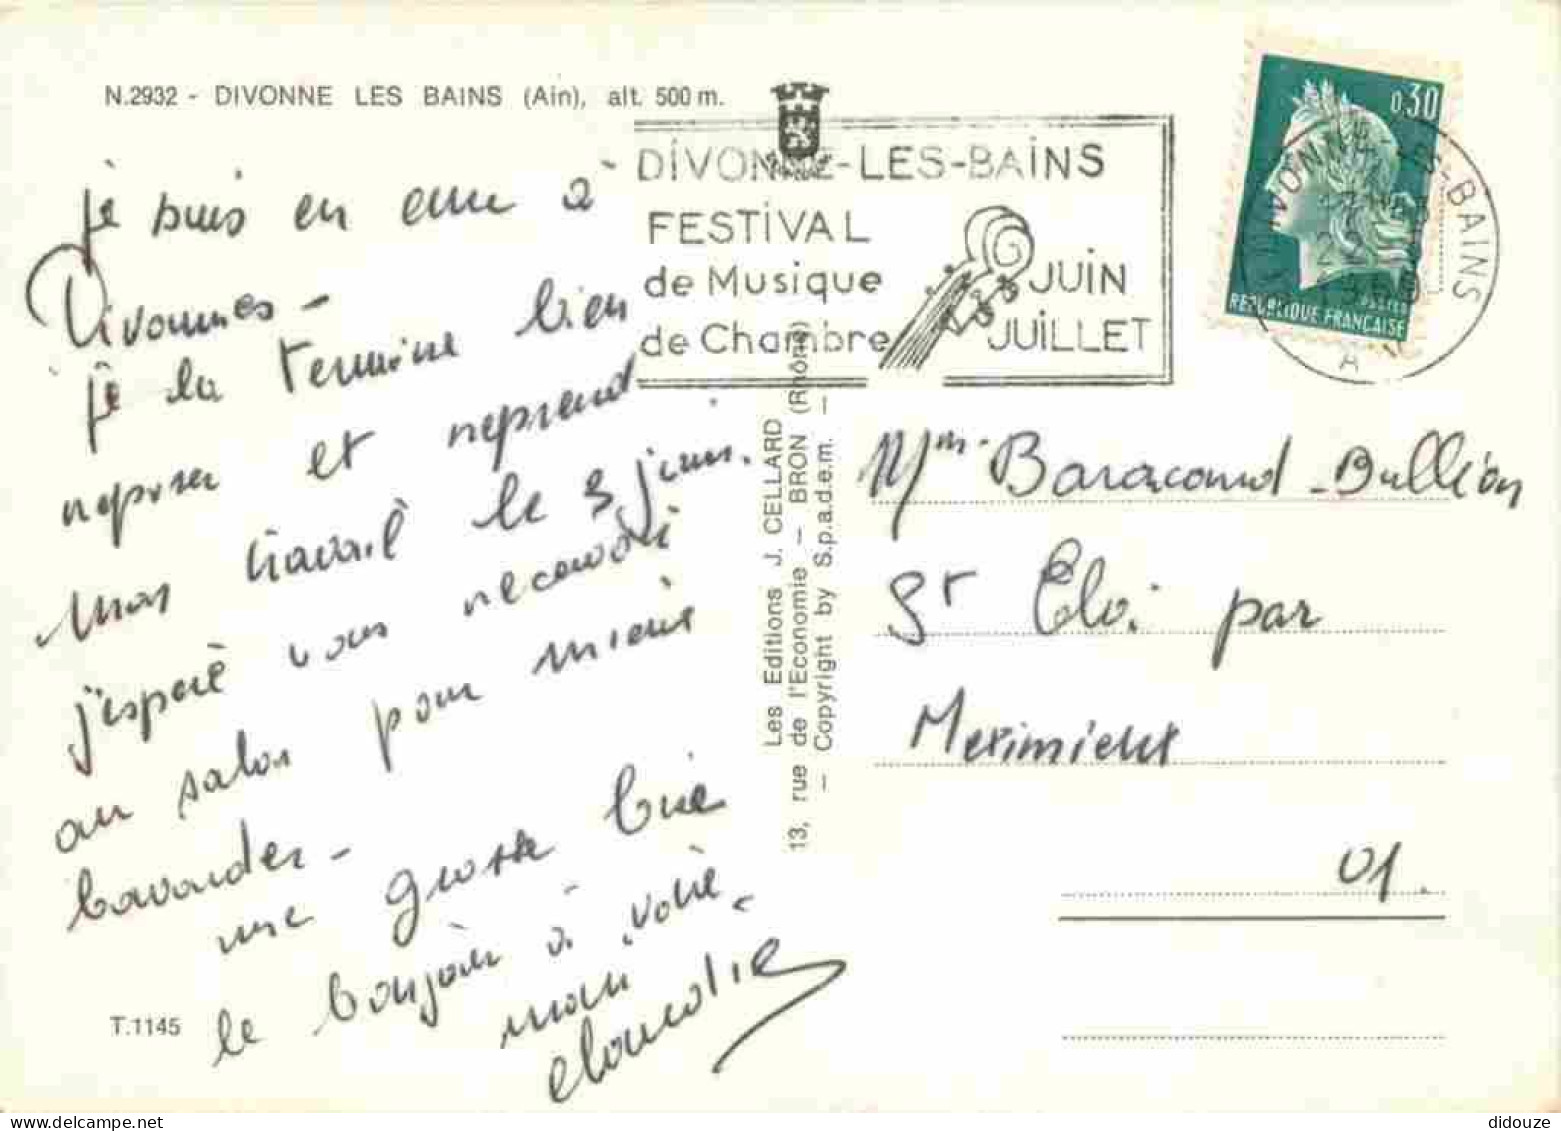 N.2932 - DIVONNE LES BAINS (Ain), alt. 500 m.
je suis en cure à
Divonnes -
je la termine bien
reposer et reprend
mon travail le 3 juin.
j'espère vous
au salon pour mieux
bavarder -
une grosse bise
le bonjour à votre
mari
T.1145
Les Editions J. CELLARD
13, rue de l'Economie - BRON (Rhône)
- Copyright by S.p.a.d.e.m. -
DIVONNE-LES-BAINS
FESTIVAL
de Musique
de Chambre
JUIN
JUILLET
0,30
POSTES
REPUBLIQUE FRANÇAISE
DIVONNE LES-BAINS
A
Mme Baracand-Bullion
St Eloi par
Meximieux
01.
didouze